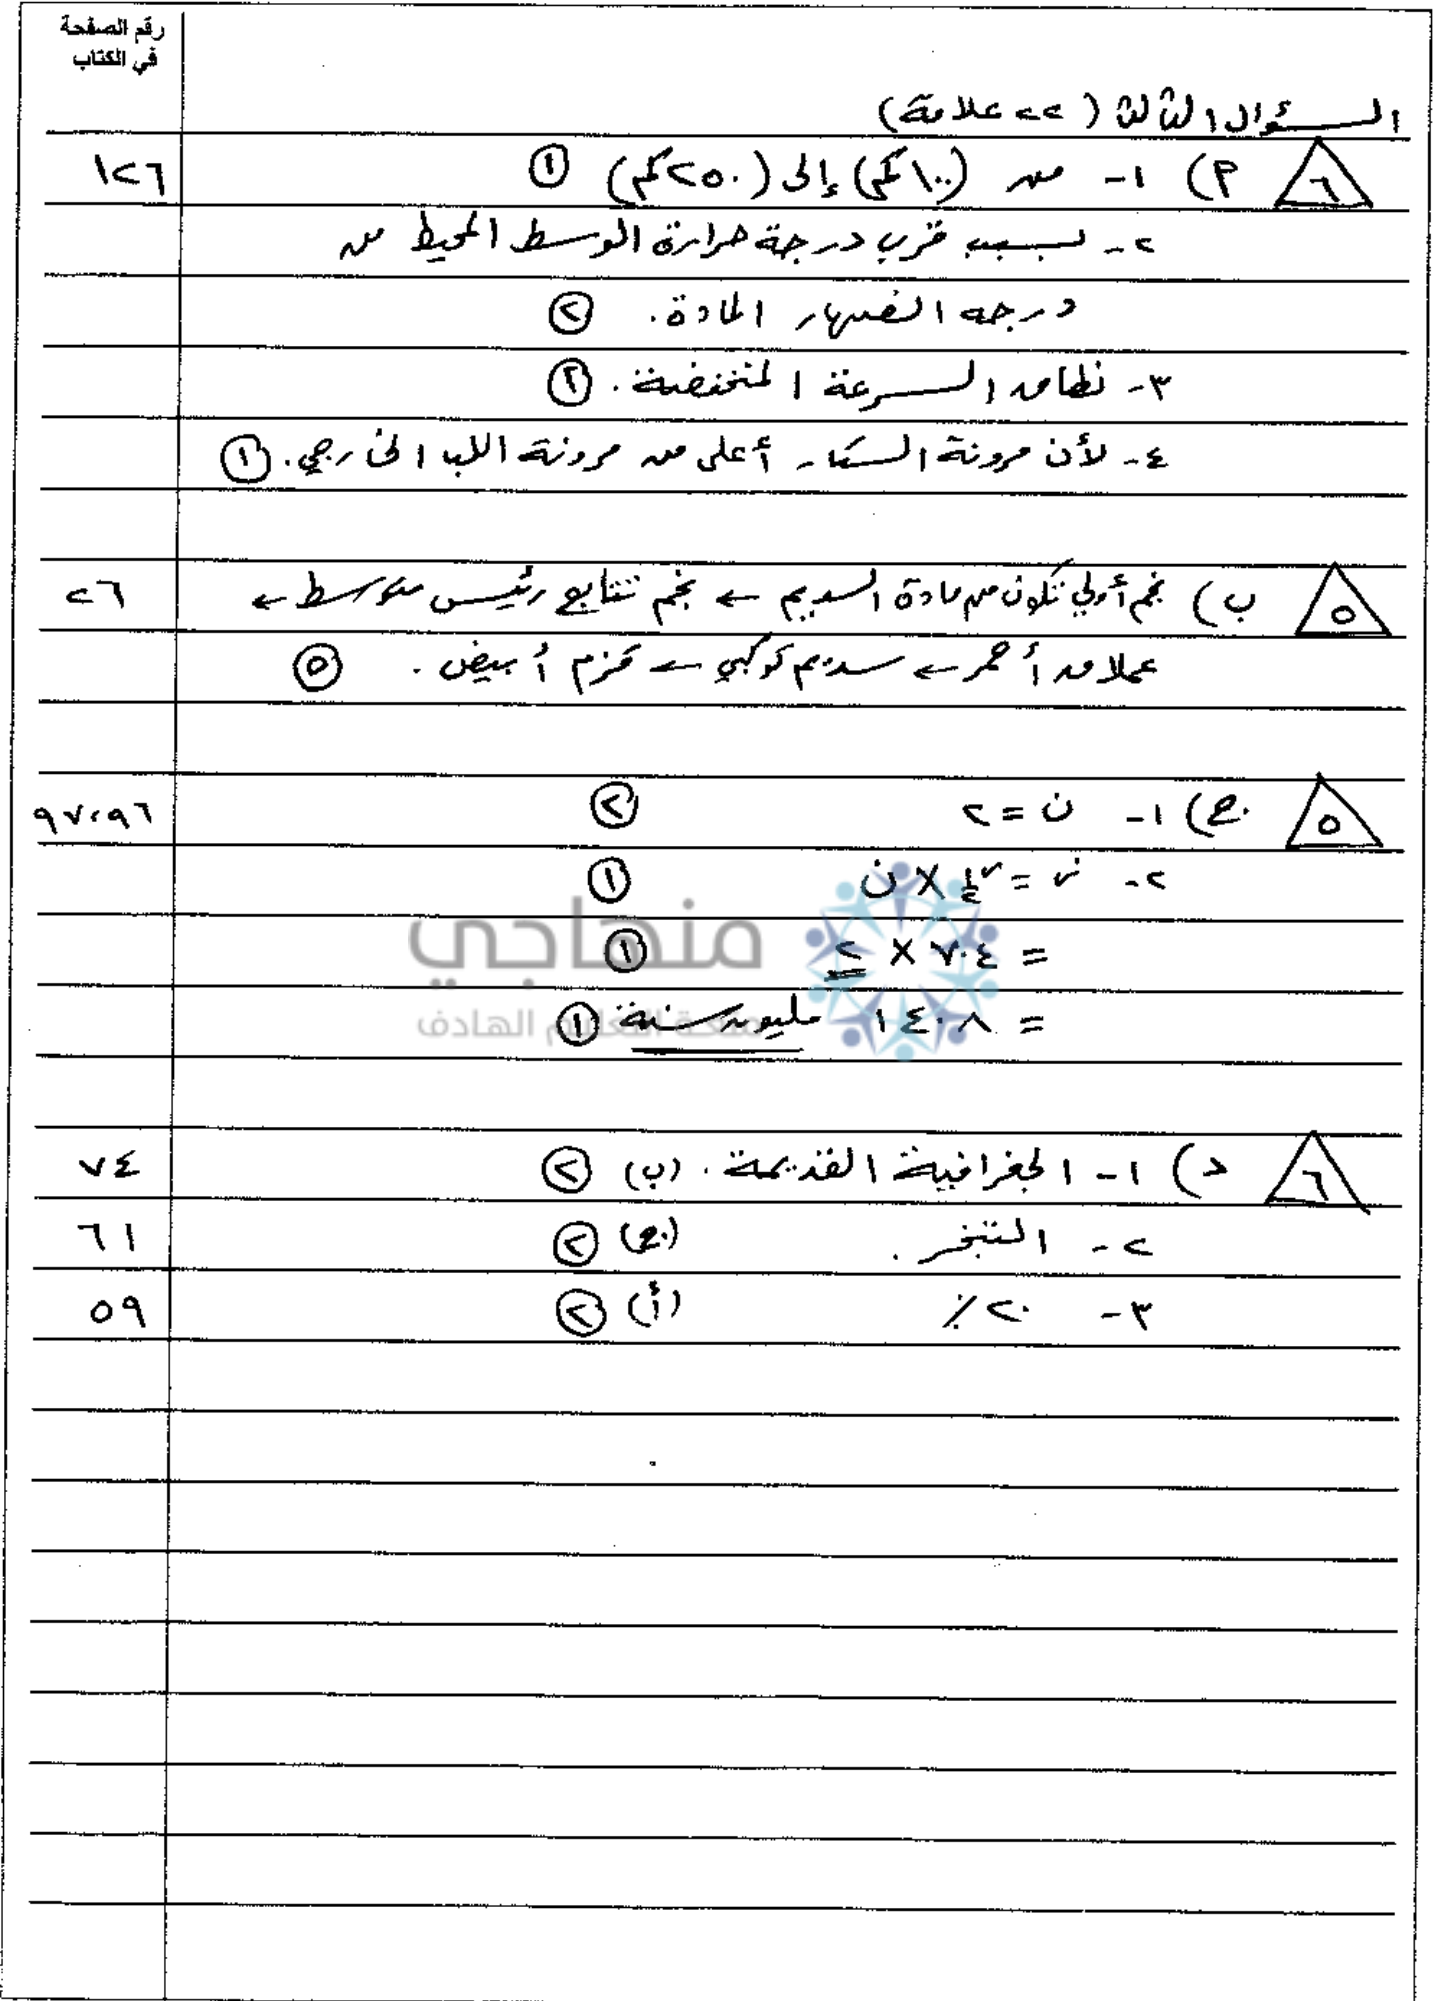 رقم الصفحة
في الكتاب
السؤال الثالث (٢٢ علامة)
٦ أ) ١- من (١٠٠كم) إلى (٢٥٠كم) ① ١٢٦
٢- بسبب قرب درجة حرارة الوسط المحيط من
درجة انصهار المادة. ②
٣- نطاق السرعة المنخفضة. ②
٤- لأن مرونة الستار أعلى من مرونة اللب الخارجي. ①
٥ ب) نجم أولي تكون من مادة السديم ← نجم تتابع رئيس متوسط ← ٢٦
عملاق أحمر ← سديم كوكبي ← قزم أبيض. ⑤
٥ ج) ١- ن = ٢ ② ٩٦،٩٧
٢- ز = ز½ × ن ①
= ٧٠٤ × ٢ ①
= ١٤٠٨ مليون سنة ①
منهاجي
متعة التعليم الهادف
٦ د) ١- الجغرافية القديمة. (ب) ② ٧٤
٢- التبخر. (ج) ② ٦١
٣- ٢٠٪ (أ) ② ٥٩